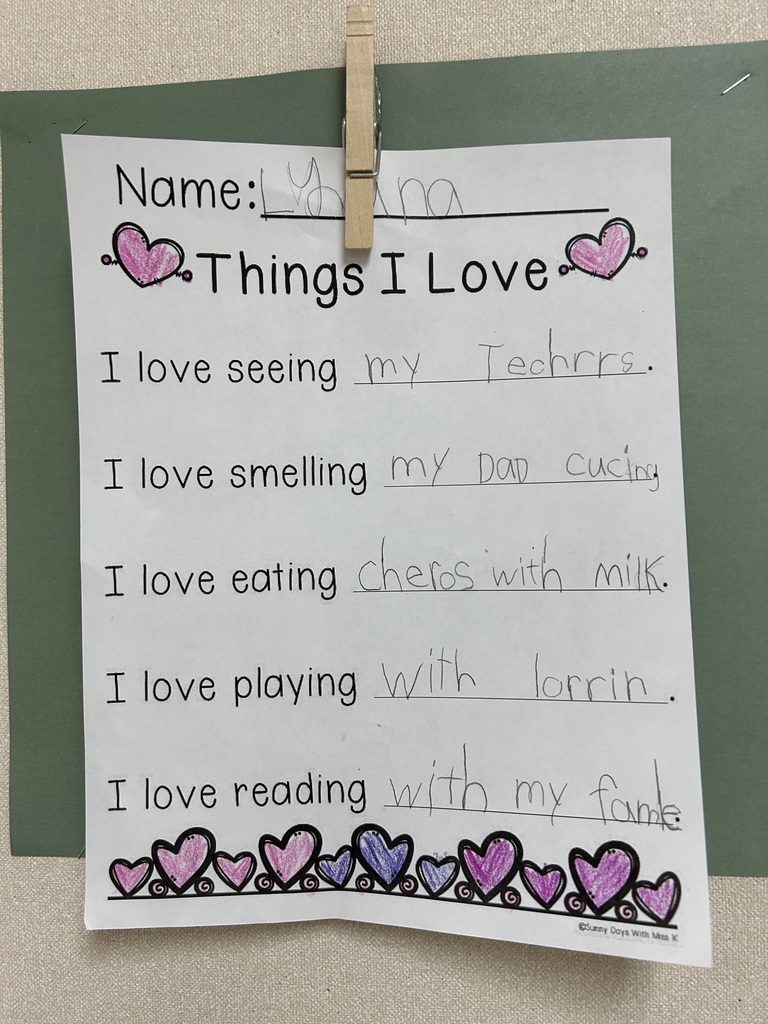 Name:
Things I Love
I love seeing my Techrrs.
I love smelling my DAD cucing.
I love eating cheros with milk.
I love playing with lorrin.
I love reading with my famle.
©Sunny Days With Miss K